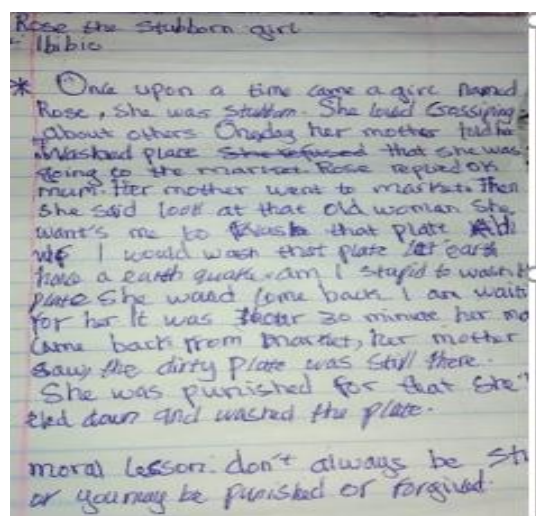 Rose the Stubborn girl
Ibibio
* Once upon a time came a girl named
Rose, She was Stubborn. She loved Gossiping
about others Oneday her mother told her
Washed place She refused that she was
going to the market. Rose replied ok
mum. Her mother went to market. Then
She said look at that old woman She
want's me to wash that plate
I would wash that plate let earth
have a earth quake. am I stupid to wash
plate She would come back I am wait
for her It was 30 minute her mo
Came back from market, her mother
saw the dirty plate was still there.
She was punished for that She
down and washed the plate.
moral lesson: don't always be St
or you may be punished or forgived.